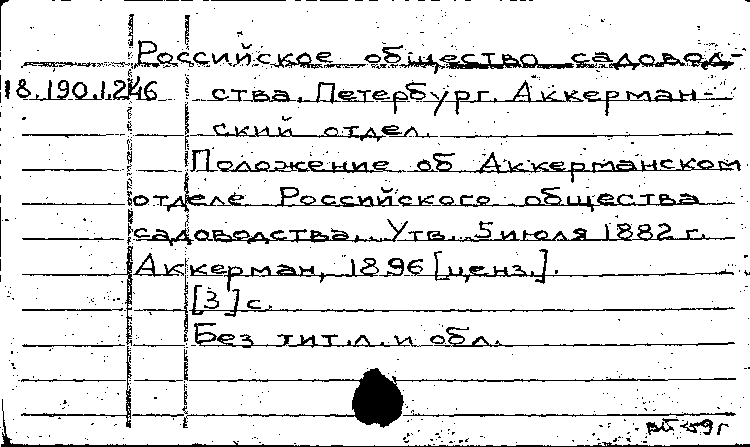 Российское общество садовод-
18.190.1.246 ства. Петербург. Аккерман-
ский отдел.
Положение об Аккерманском
отделе Российского общества
садоводства. Утв. 5 июля 1882 г.
Аккерман, 1896 [ценз.].
[3] с.
Без тит. л. и обл.